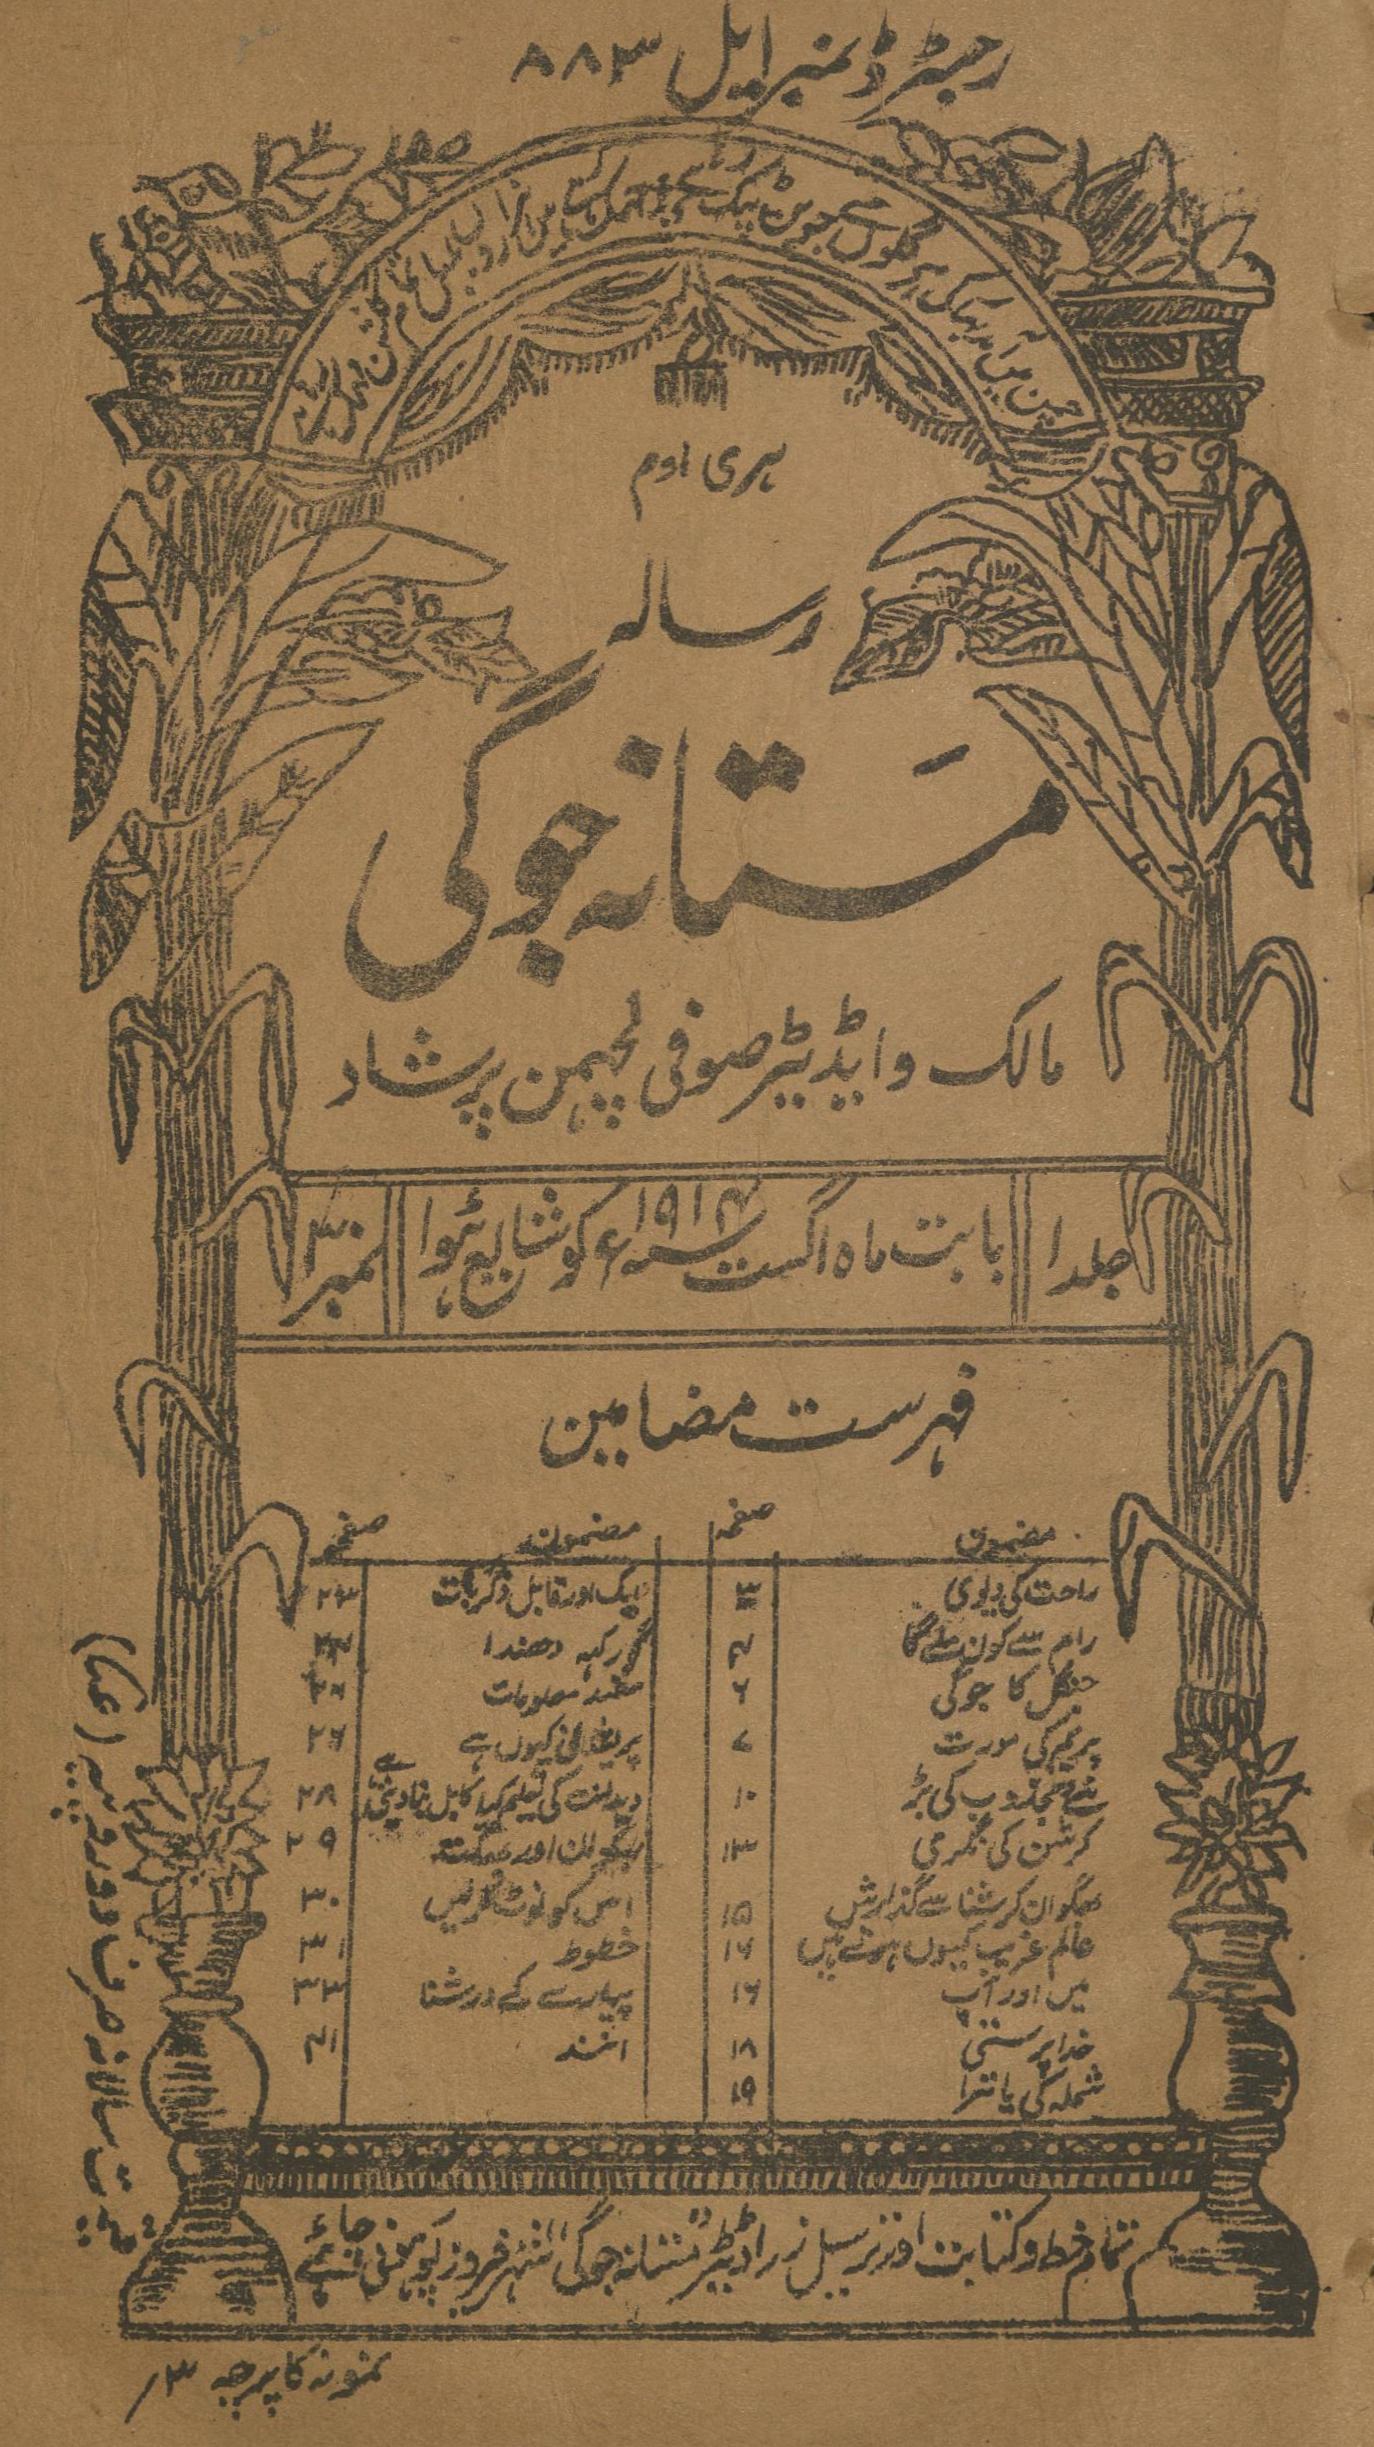 رجسٹرڈ نمبر ایل ۸۸۳
چمن میں آ بہا کر ہر گلوں سے جوین
ہری اوم
رسالہ
مستانہ جوگی
مالک و ایڈیٹر صوفی لچہمن پرشاد
جلد ۱
بابت ماہ اگست ۱۹۱۴ء کو شایع ہوا
نمبر ۳
فہرست مضامین
مضمون صفحہ مضمون صفحہ
راحت کی دیوی ۳ ایک اور قابل ذکر بات ۲۳
رام سے کون ملے گا ۴ گورکہہ دھندا
جنگل کا جوگی ۶ مفید معلومات
پریم کی مورت ۷ پریشانی کیوں ہے ۲۶
نئے مجذوب کی بڑ ۱۰ ویدانت کی تعلیم کیا کاہل بنا دیتی ہے ۲۸
کرشن کی نگری ۱۳ بھگوان اور بھگت ۲۹
بھگوان کرشنا سے گذارش ۱۵ اس کو نوٹ کرلیں ۳۰
عالم غریب کیوں ہوتے ہیں ۱۶ خطوط ۳۱
میں اور آپ ۱۶ پیارے کے درشنا ۳۳
خدا پرستی ۱۸ انند ۴۱
شملہ کی یاترا ۱۹
تمام خط و کتابت اور ترسیل زر اڈیٹر "مستانہ جوگی" شہر فیروزپور ہونی چاہئے
قیمت سالانہ صرف دو روپیہ (عہ)
نمونہ کا پرچہ ۳؍